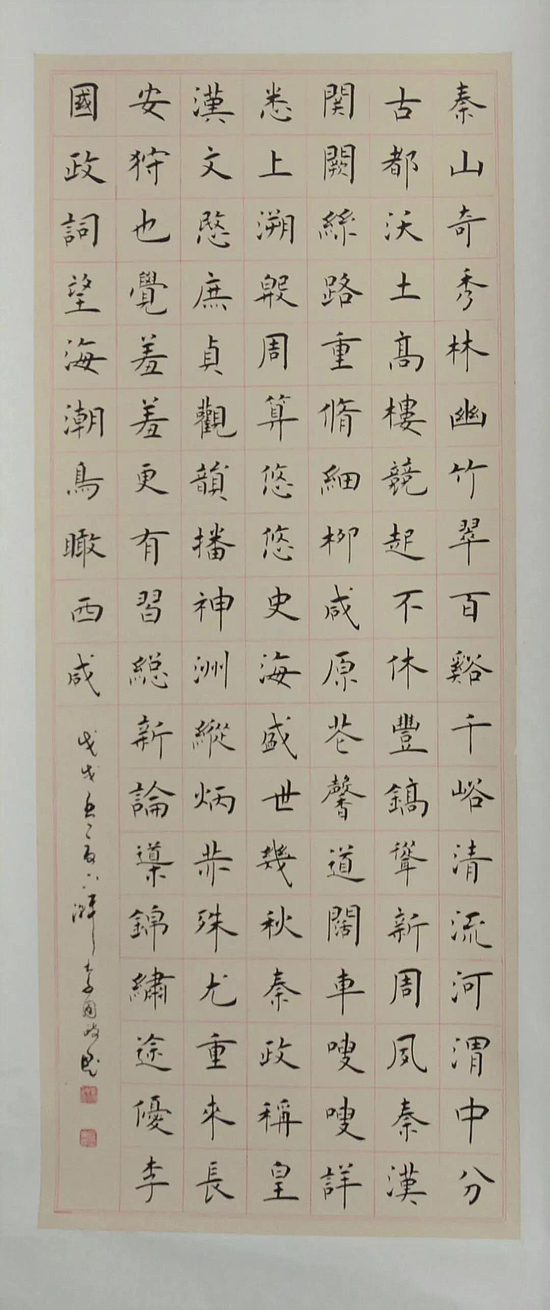 秦山奇秀林幽竹翠百谿千峪清流河渭中分
古都沃土高樓競起不休豐鎬聳新周風秦漢
関闕絲路重脩細柳咸原芲馨道闊車嗖嗖詳
悉上溯殷周算悠悠史海盛世幾秋秦政稱皇
漢文愍庶貞觀韻播神洲縱炳恭殊尤重來長
安狩也覺羞羞更有習総新論導錦繡途優李
國政詞望海潮鳥瞰西咸
戊戌
李國政